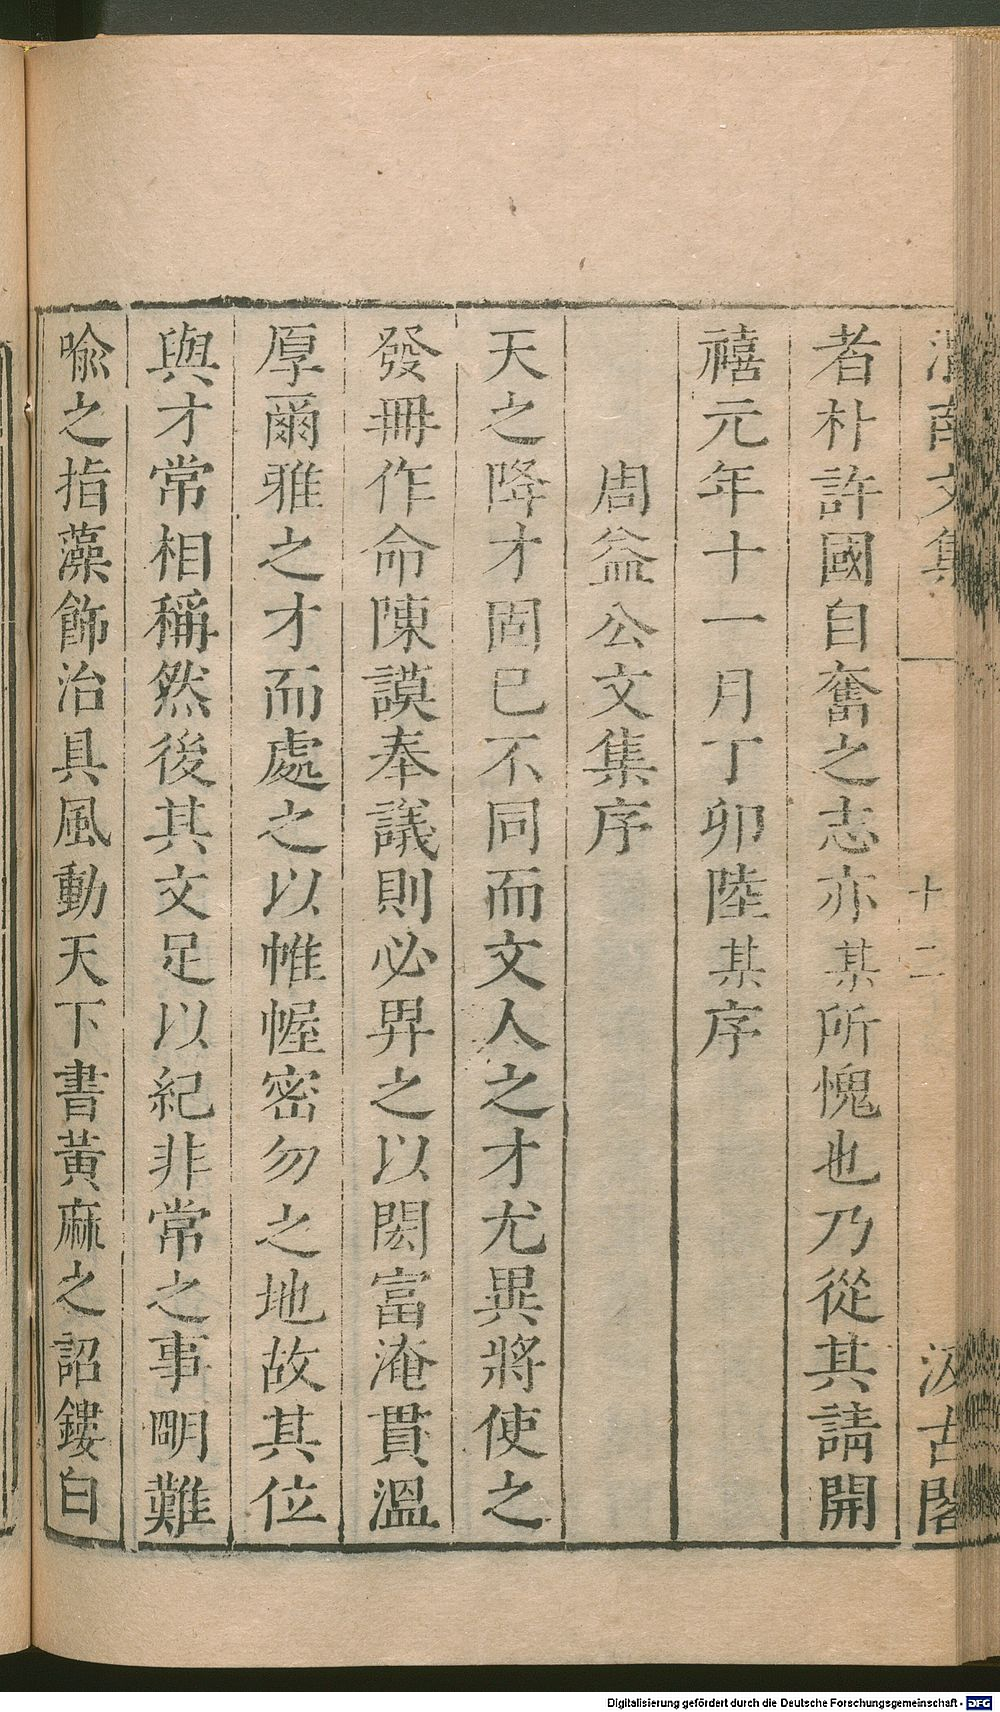 渭南文集
十二
汲古閣
者朴許國自奮之志亦某所愧也乃從其請開
禧元年十一月丁卯陸某序
周益公文集序
天之降才固已不同而文人之才尤異將使之
發冊作命陳謨奉議則必畀之以閎富淹貫溫
厚爾雅之才而處之以帷幄密勿之地故其位
與才常相稱然後其文足以紀非常之事明難
喻之指藻飾治具風動天下書黃麻之詔鏤白
Digitalisierung gefördert durch die Deutsche Forschungsgemeinschaft - DFG